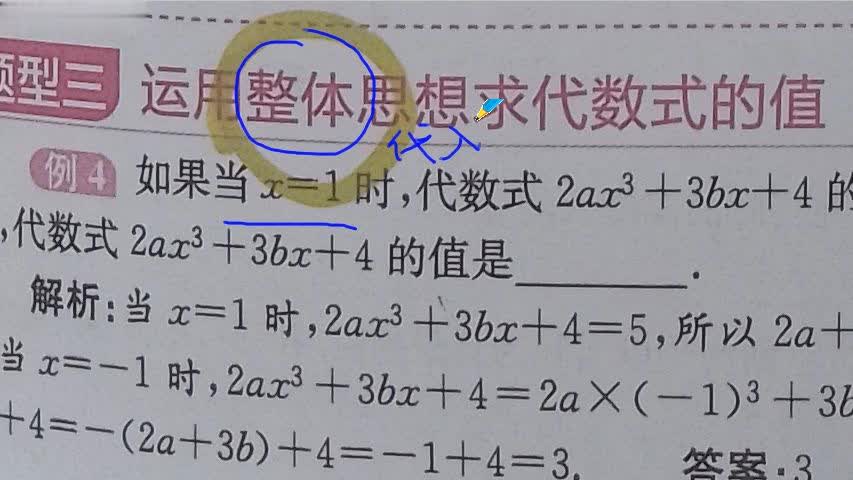 题型三 运用整体思想求代数式的值
代入
例4 如果当 x=1 时,代数式 2ax³+3bx+4 的
,代数式 2ax³+3bx+4 的值是________.
解析:当 x=1 时,2ax³+3bx+4=5,所以 2a+
当 x=-1 时,2ax³+3bx+4=2a×(-1)³+3b
+4=-(2a+3b)+4=-1+4=3. 答案:3